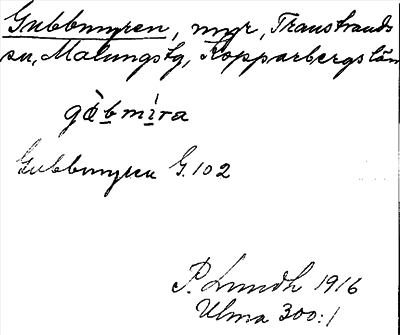 Gubbmyren, myr, Transtrands
sn, Malungs tg, Kopparbergs län
gòbmìra
Gubbmyren G. 102
P. Lundh 1916
Ulma 300:1